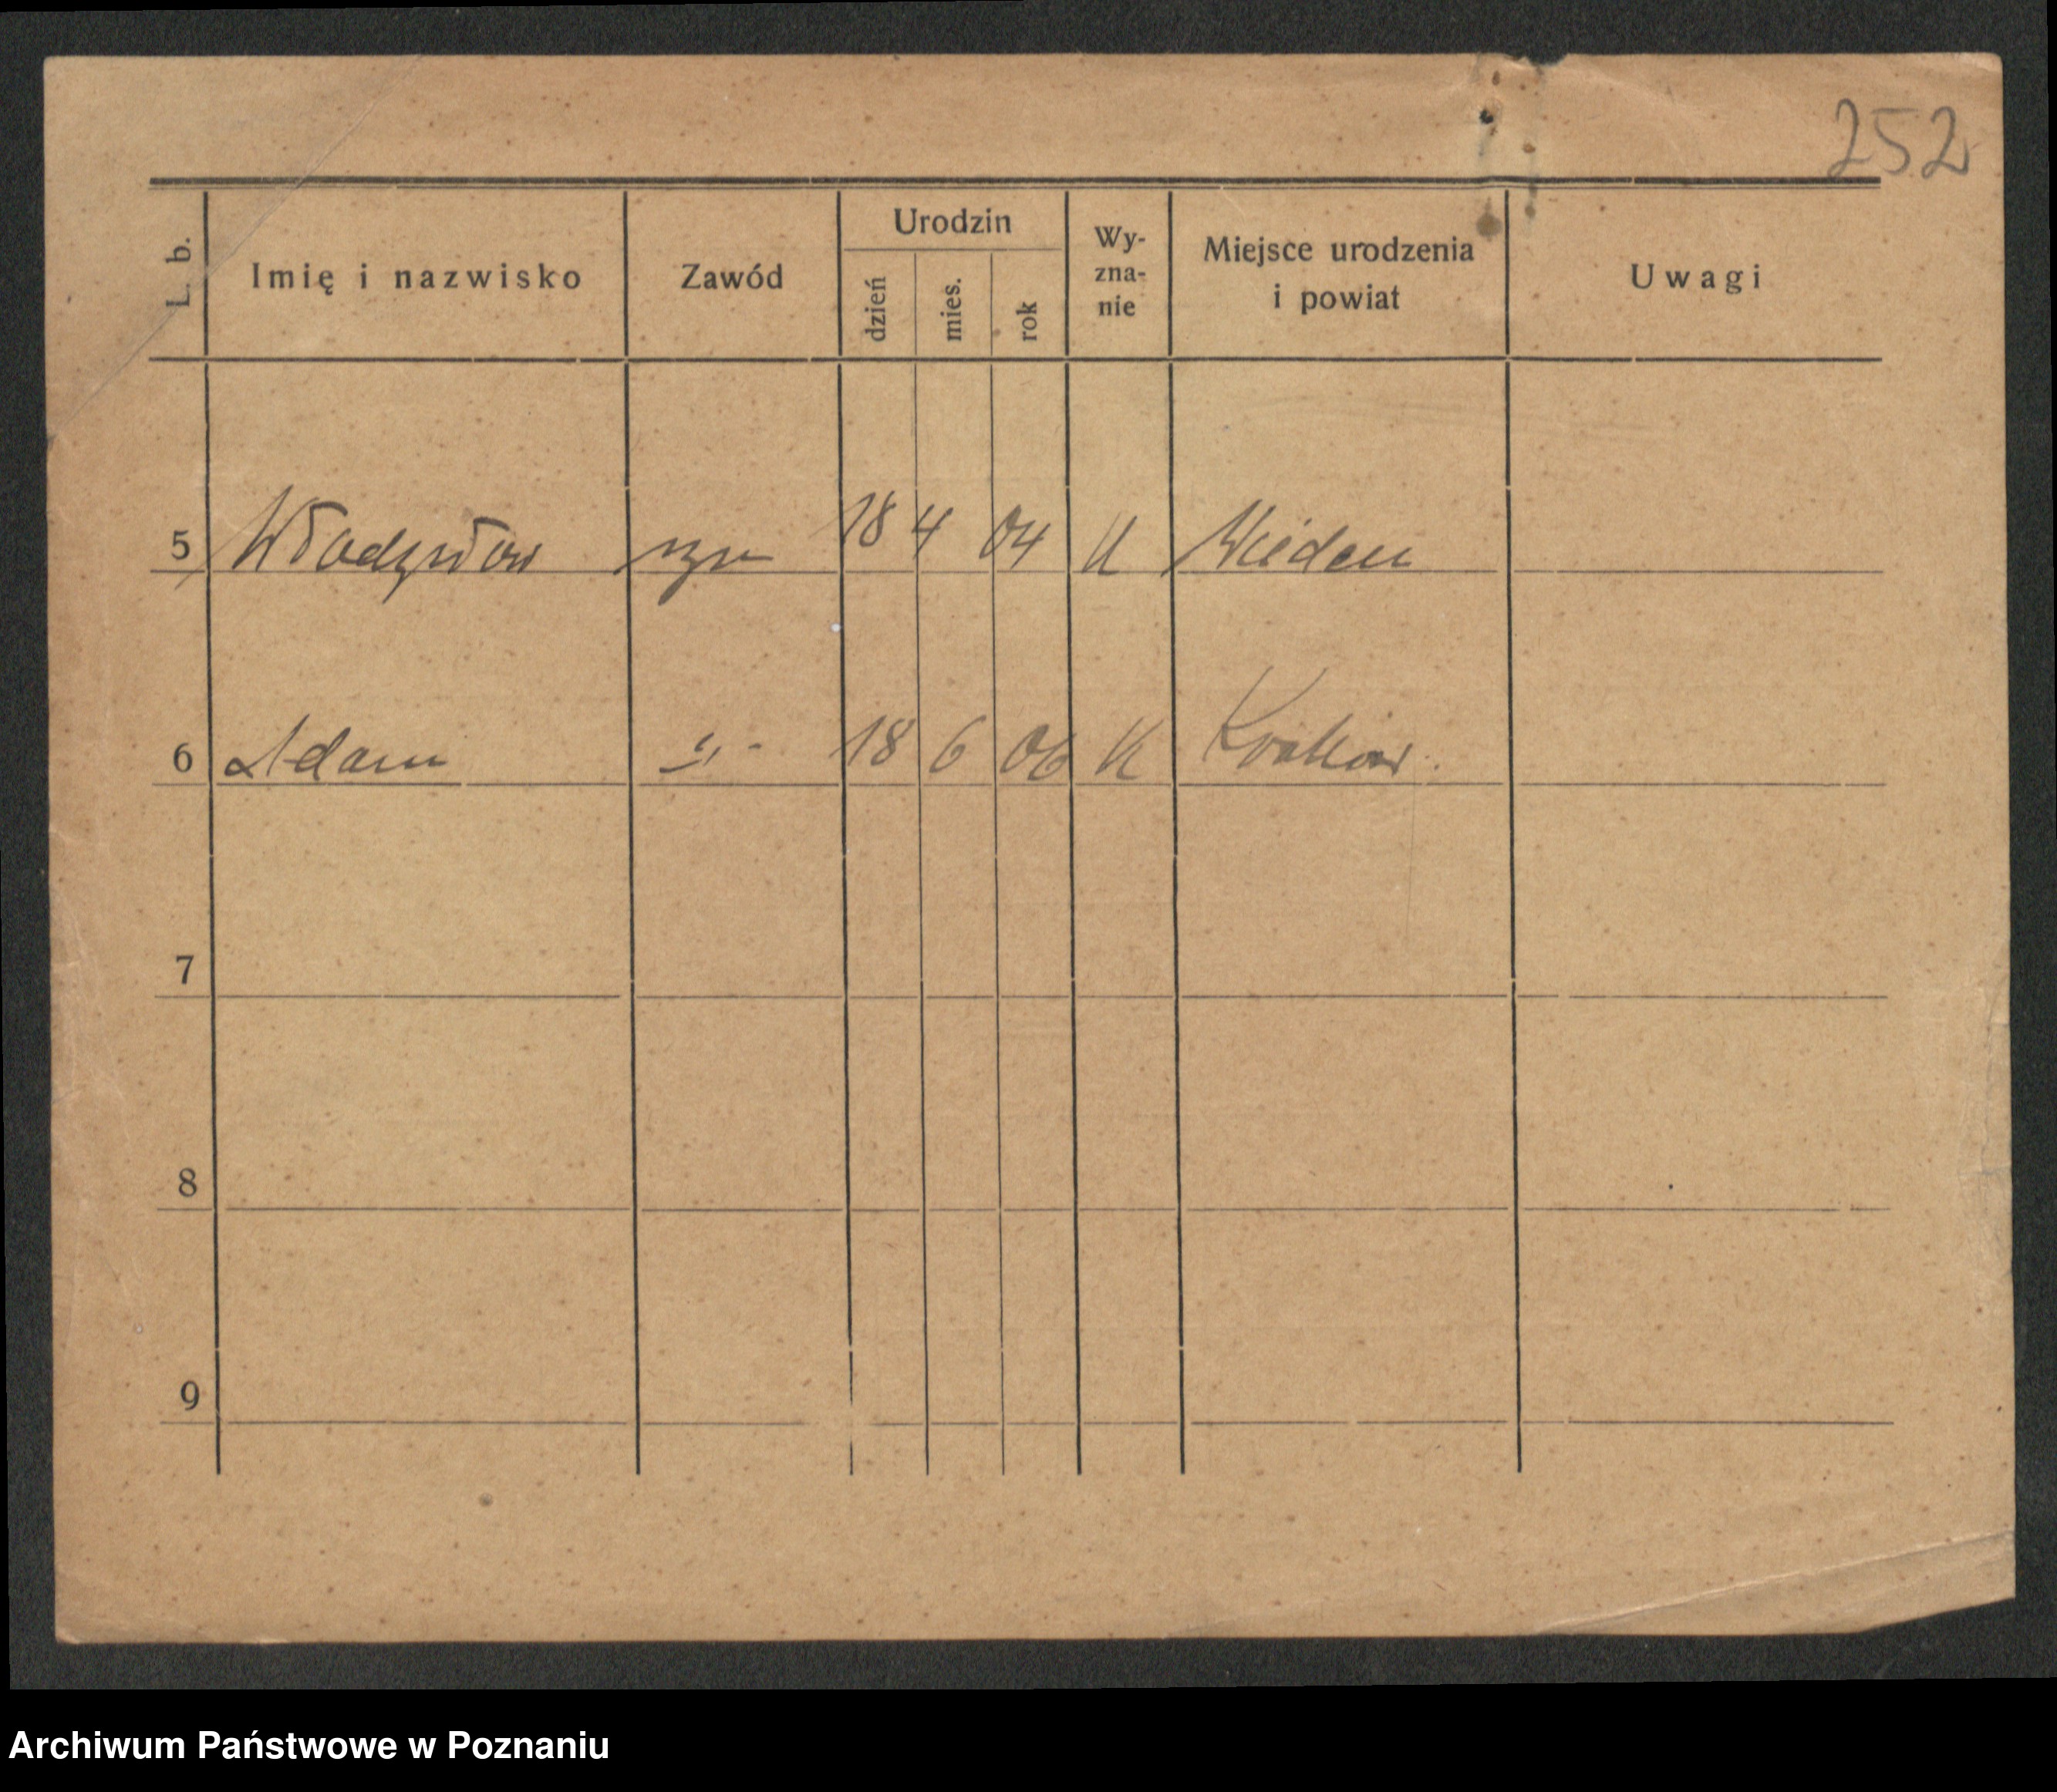 252
L. b.
Imię i nazwisko
Zawód
Urodzin
dzień
mies.
rok
Wy-
zna-
nie
Miejsce urodzenia
i powiat
Uwagi
5 syn 18 4 04 K Wiedeń
6 Adam -"- 18 6 06 K Kraków.
7
8
9
Archiwum Państwowe w Poznaniu